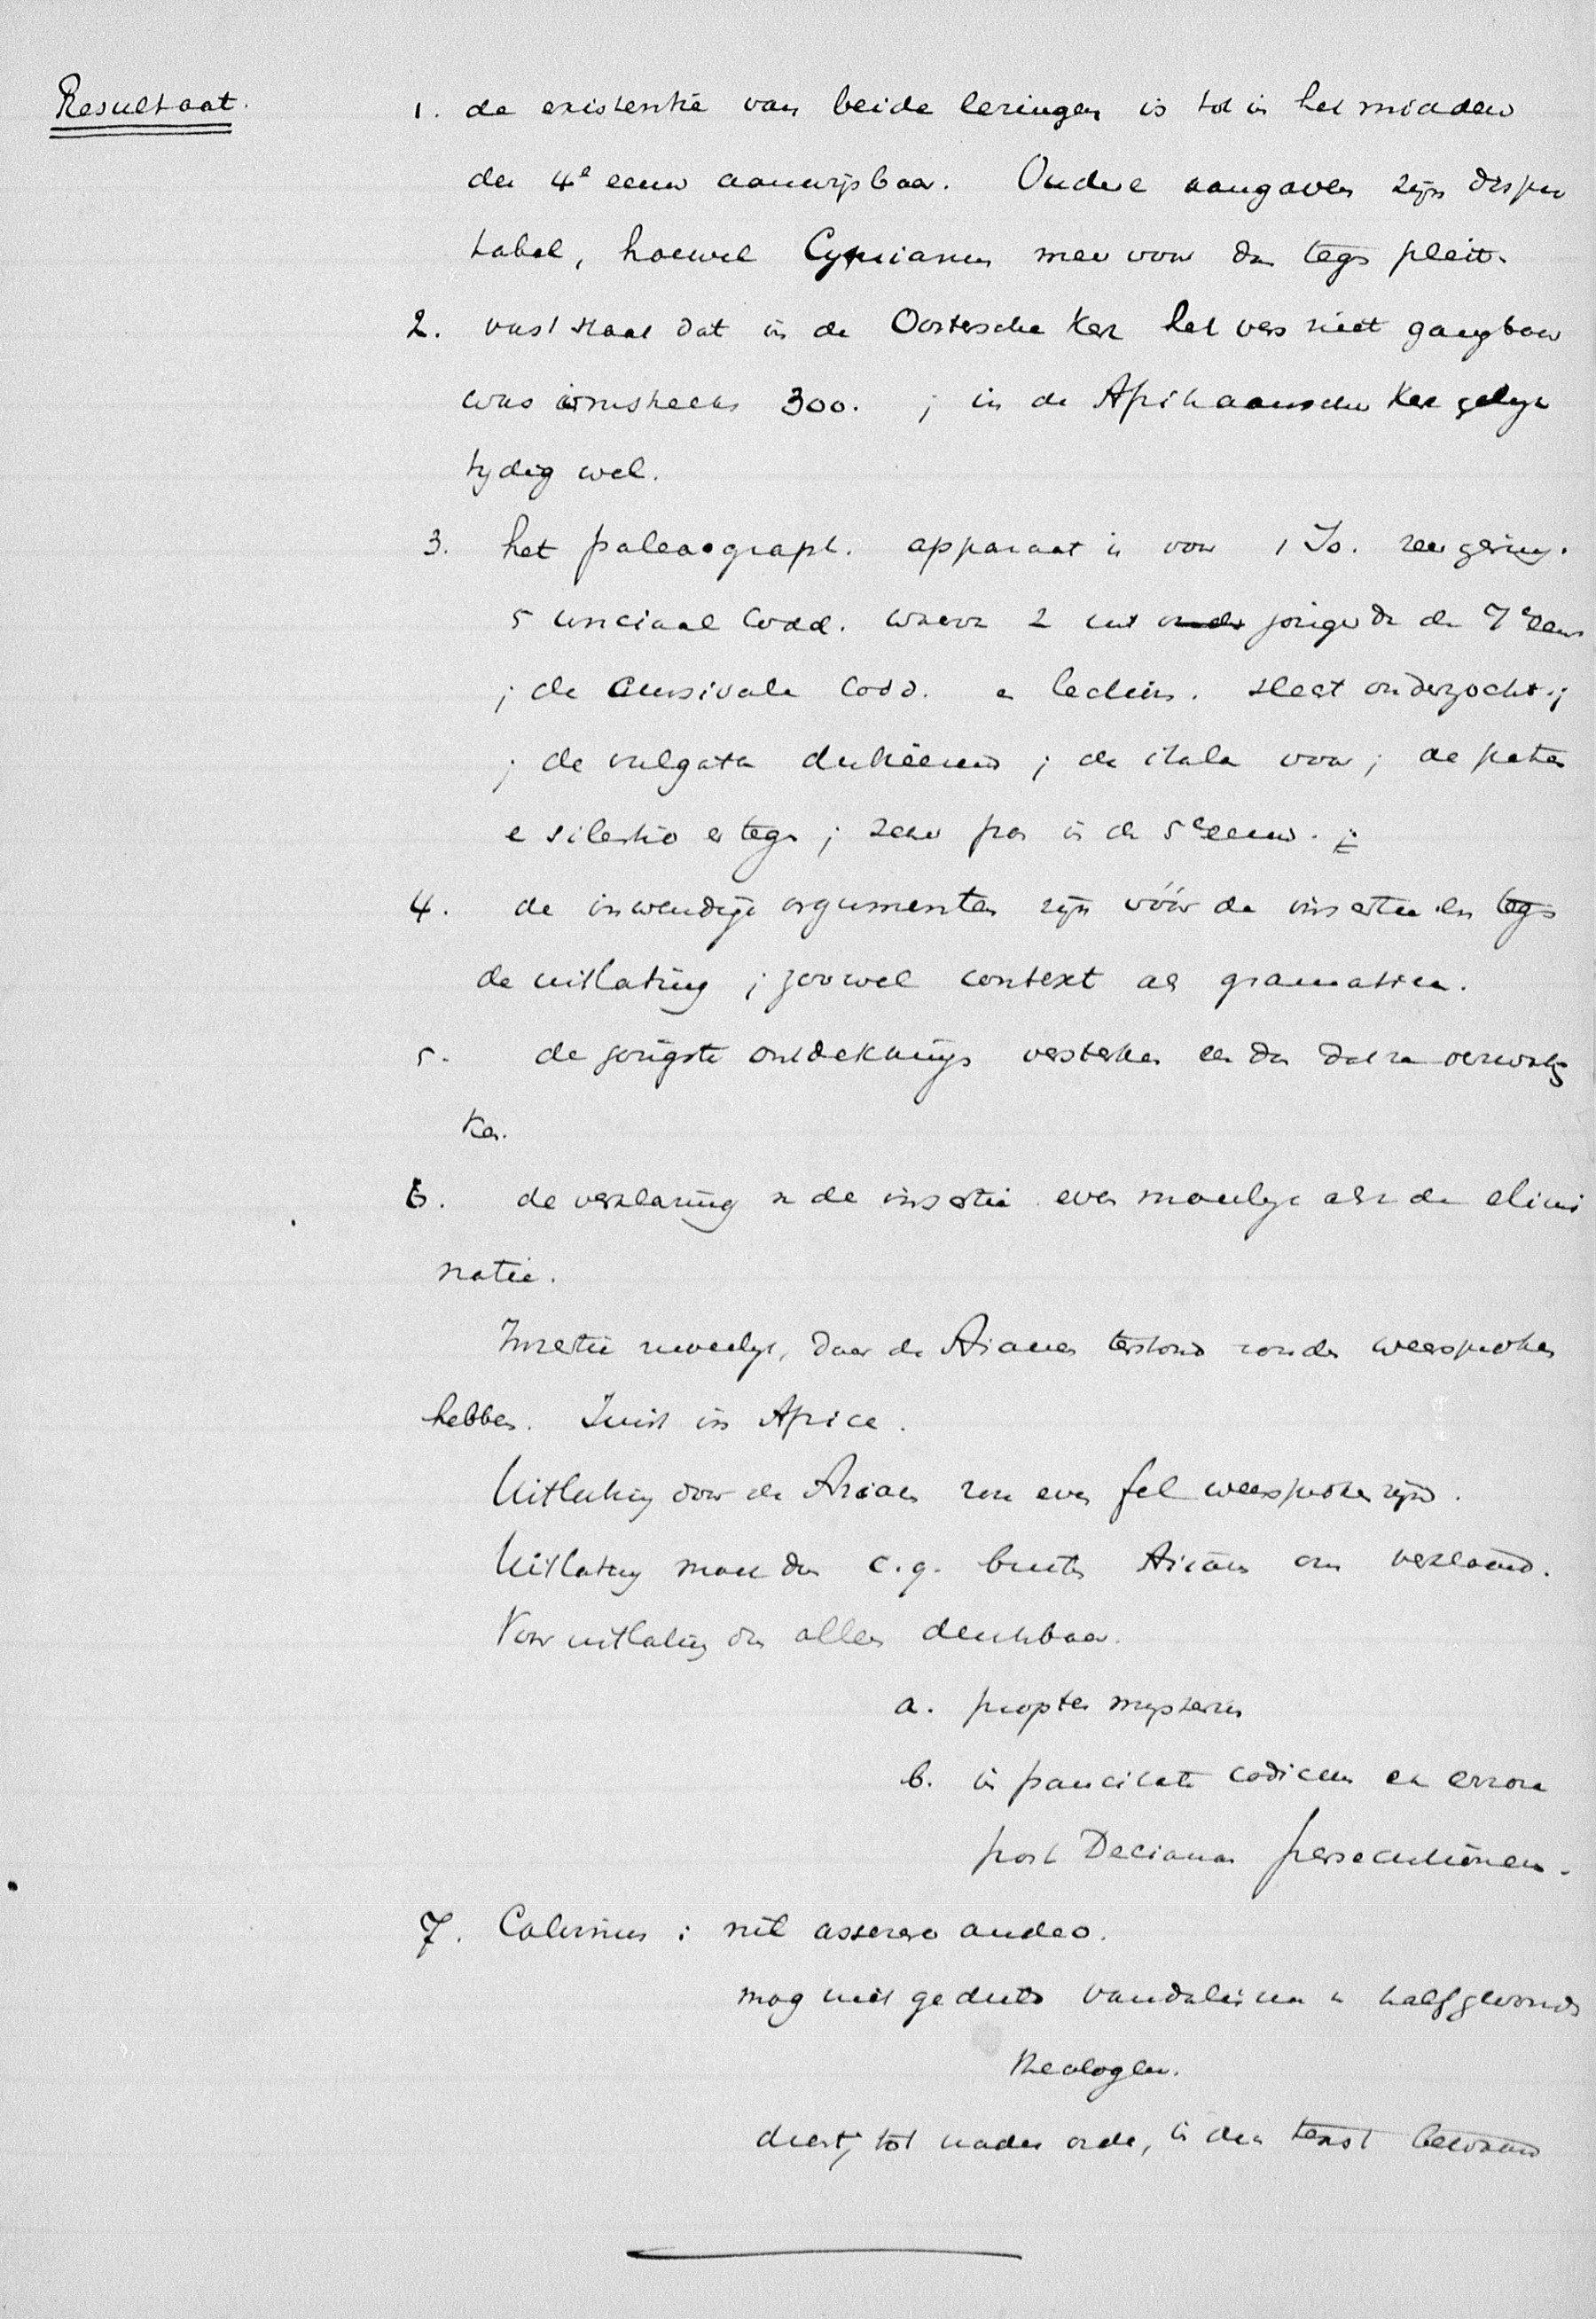 Resultaat.
1. de existentie van beide lezingen is tot in het midden
der 4e eeuw aanwijsbaar. Oudere aangaven zijn dispu
tabel, hoewel Cyprianus meer voor dan tegen pleit.
2. vast staat dat in de Oostersche Kerk het vers niet gangbaar
was omstreeks 300. ; in de Afrikaansche Kerk gelijk
tydig wel.
3. het palaeograph. apparaat is voor 1 Jo. zeer gering.
5 unciaal Codd. waarv 2 uit jonger dan de 7e eeuw
; de Cursivale Codd. en lection. slecht onderzocht ;
; de vulgata dubieus ; de itala voor ; de patres
e silentio er tegen ; zeker pas in de 5e eeuw. ;
4. de inwendige argumenten zijn vóór de insertie en tegen
de uitlating ; zoowel context als grammatica.
5. de jongste ontdekkingen versterken eer dan dat ze verzwak
ken.
6. de verklaring v de insertie even moeilyk als de elimi
natie.
Insertie moeilyk, daar de Arianen terstond zouden weersproken
hebben. Juist in Africa.
Uitlating door de Arianen zou even fel weersproken zijn.
Uitlating moet dus c.q. buiten Arianen om verklaard.
Voor uitlating dus allen denkbaar.
a. propter mysterium
b. in paucitate codicum ex errore
post Decianam persecutionem.
7. Calvinus : nil asserere audeo.
mag niet geduld vandalisme v halfgevormde
theologen.
dient, tot nader orde, in den tekst bewaard